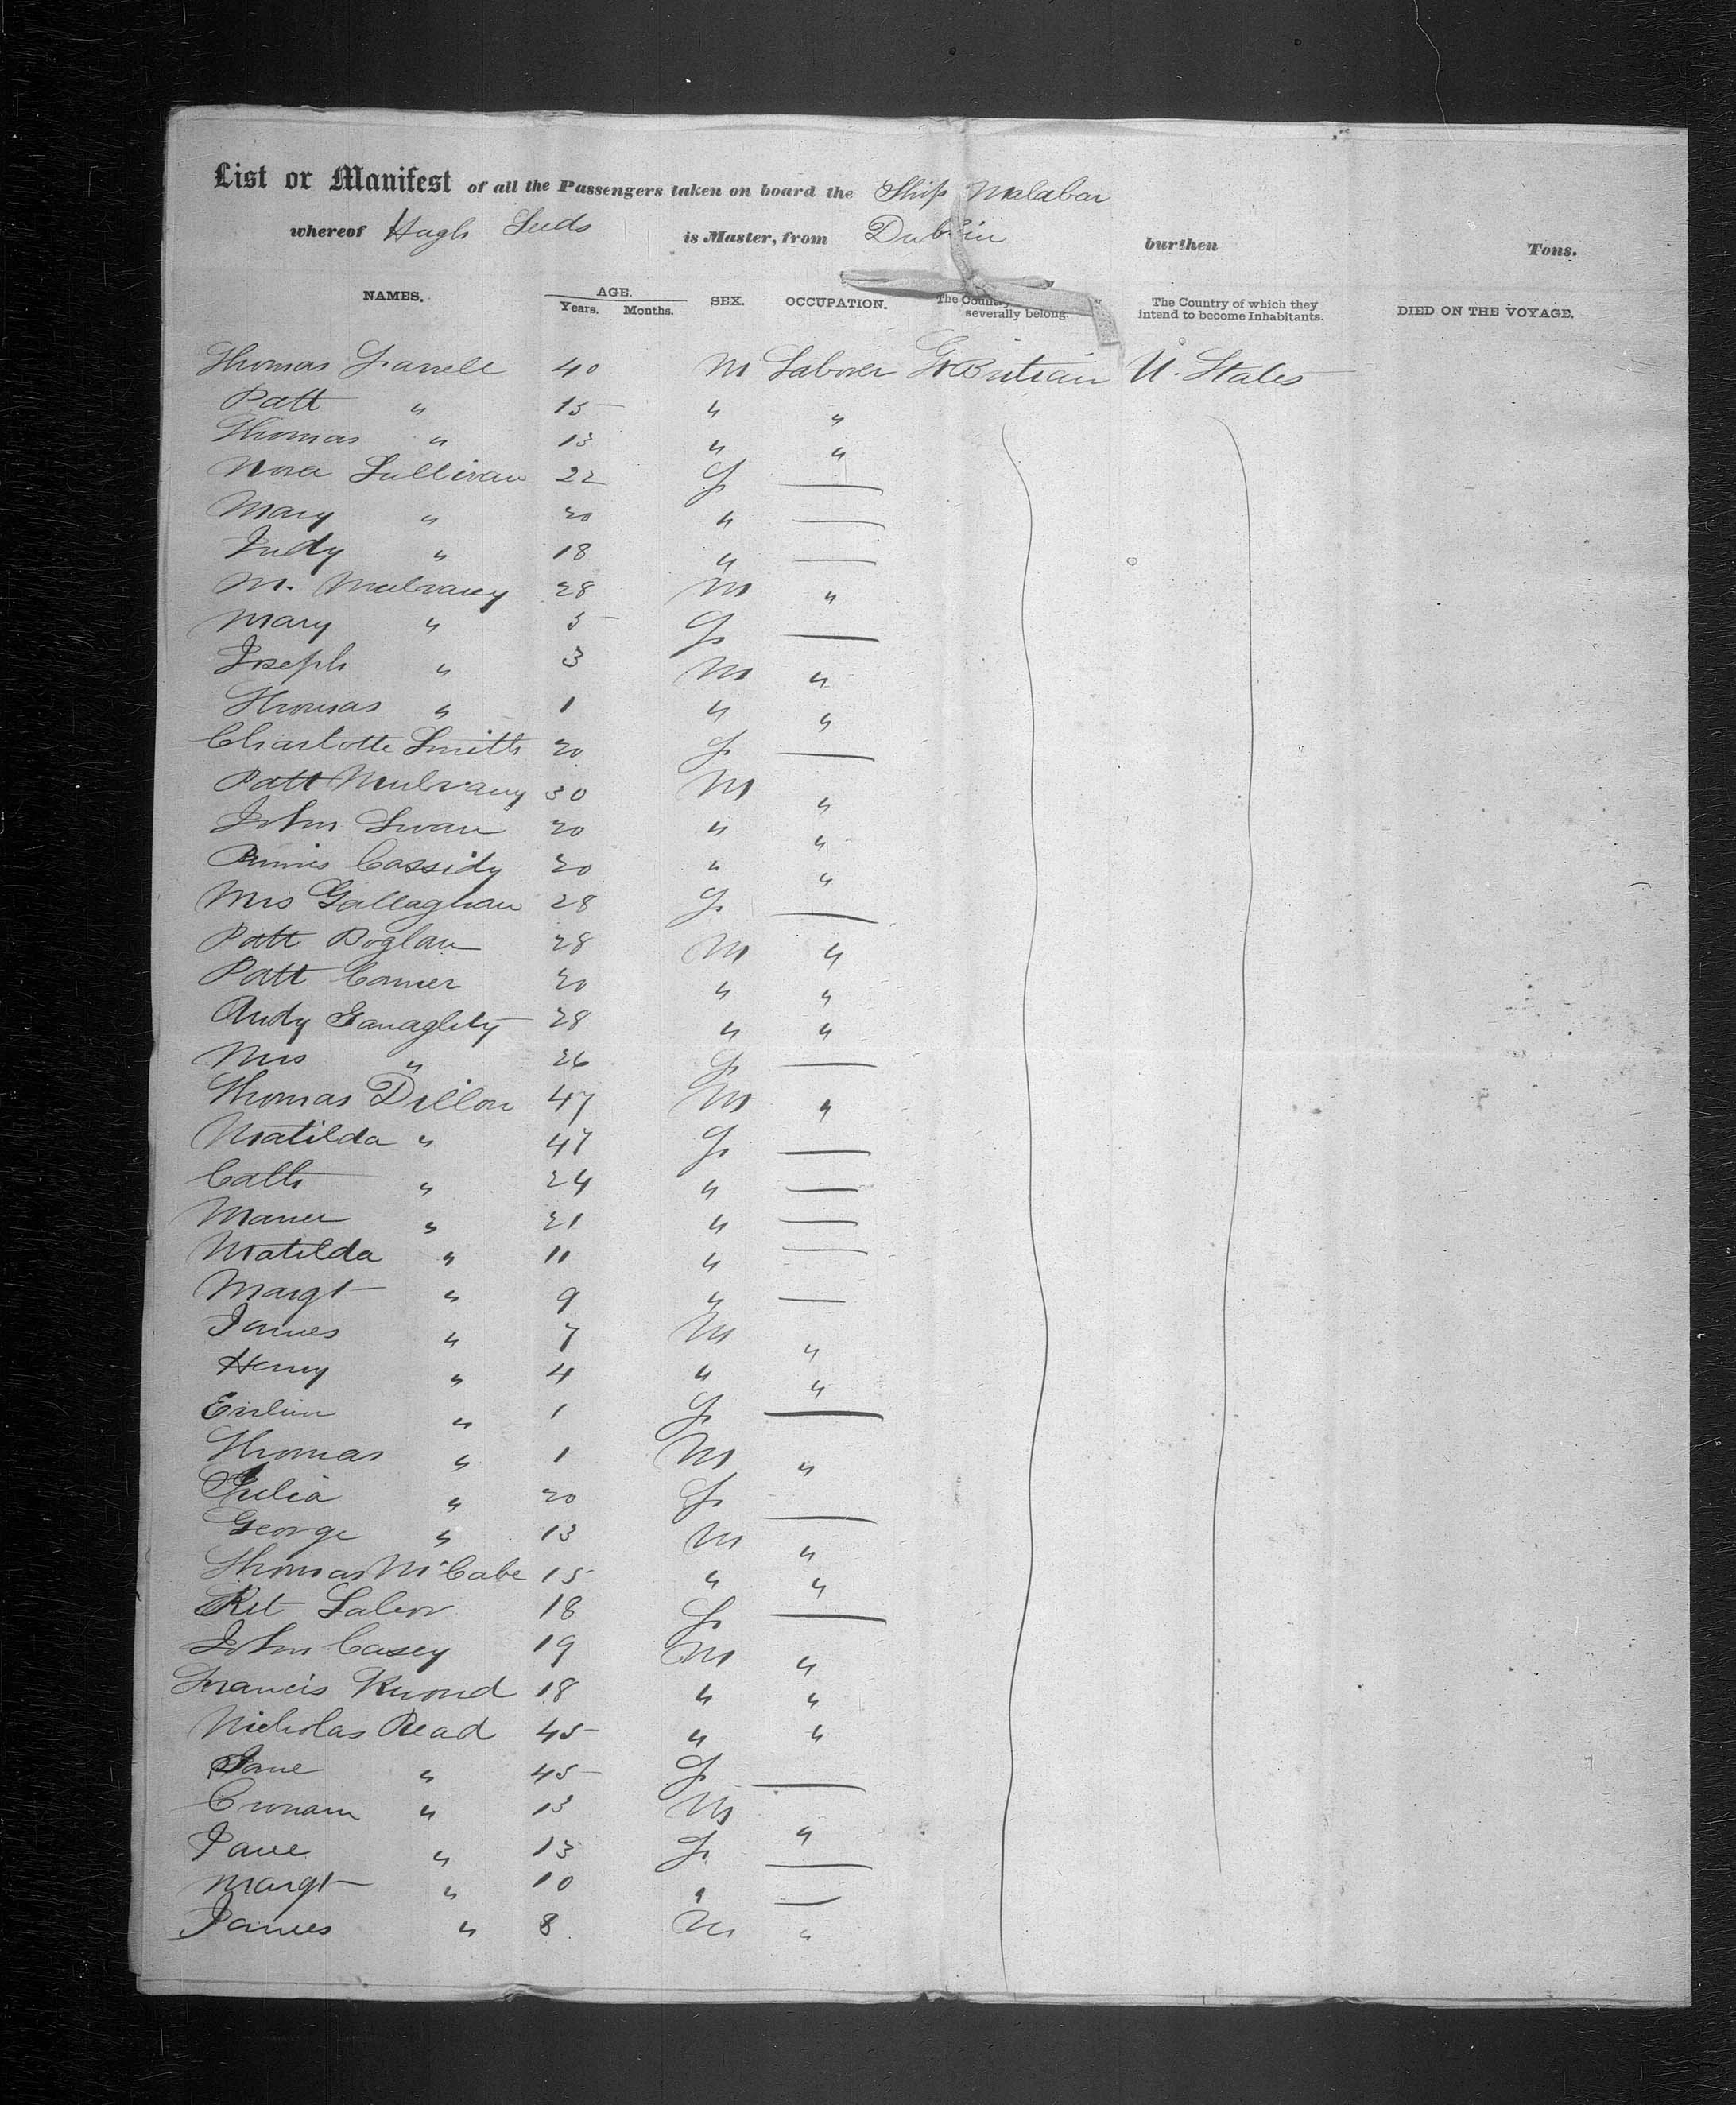 List or Manifest of all the Passengers taken on board the Ship Malabar
whereof Hugh is Master, from Dublin burthen Tons.
NAMES. AGE. Years. Months. SEX. OCCUPATION. The Country severally belong. The Country of which they intend to become Inhabitants. DIED ON THE VOYAGE.
Thomas Farrell 40 M Laborer Gr Britian U. States
Patt " 15 " "
Thomas " 13 " "
Nora Sullivan 22 F —
Mary " 20 " —
Judy " 18 " —
M. Mulvaney 28 M "
Mary " 5 F —
Joseph " 3 M "
Thomas " 1 " "
Charlotte Smith 20 F —
Patt Mulvany 30 M "
John Swan 20 " "
Cassidy 20 " "
Mrs Gallaghan 28 F —
Patt Boglan 28 M "
Patt 20 " "
Andy 28 " "
Mrs " 26 F —
Thomas Dillon 47 M "
Matilda " 47 F —
Cath " 24 " —
" 21 " —
Matilda " 11 " —
Margt " 9 " —
James " 7 M "
Henry " 4 " "
" 1 F —
Thomas " 1 M "
Julia " 20 F —
George " 13 M "
Thomas McCabe 15 " "
18 F —
John Casey 19 M "
Francis 18 " "
Nicholas Read 45 " "
Jane " 45 F —
" 13 M "
Jane " 13 F —
Margt " 10 " —
James " 8 M "